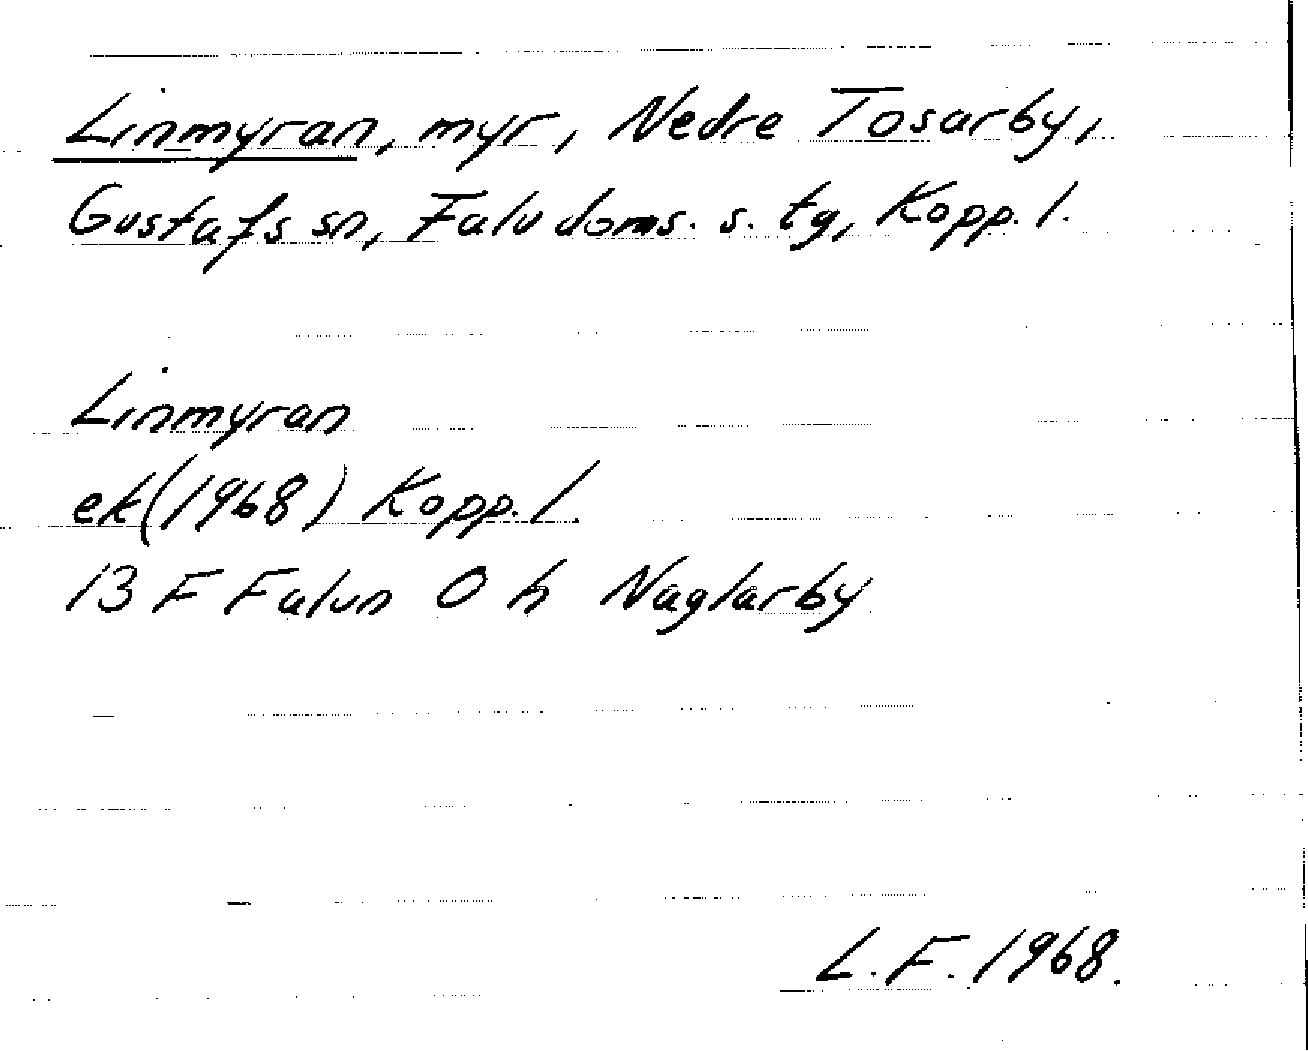 Linmyran, myr, Nedre Tosarby,
Gustafs sn, Falu doms. s. tg, Kopp. l.
Linmyran
ek (1968) Kopp. l.
13 F Falun 0 h Naglarby
L. F. 1968.